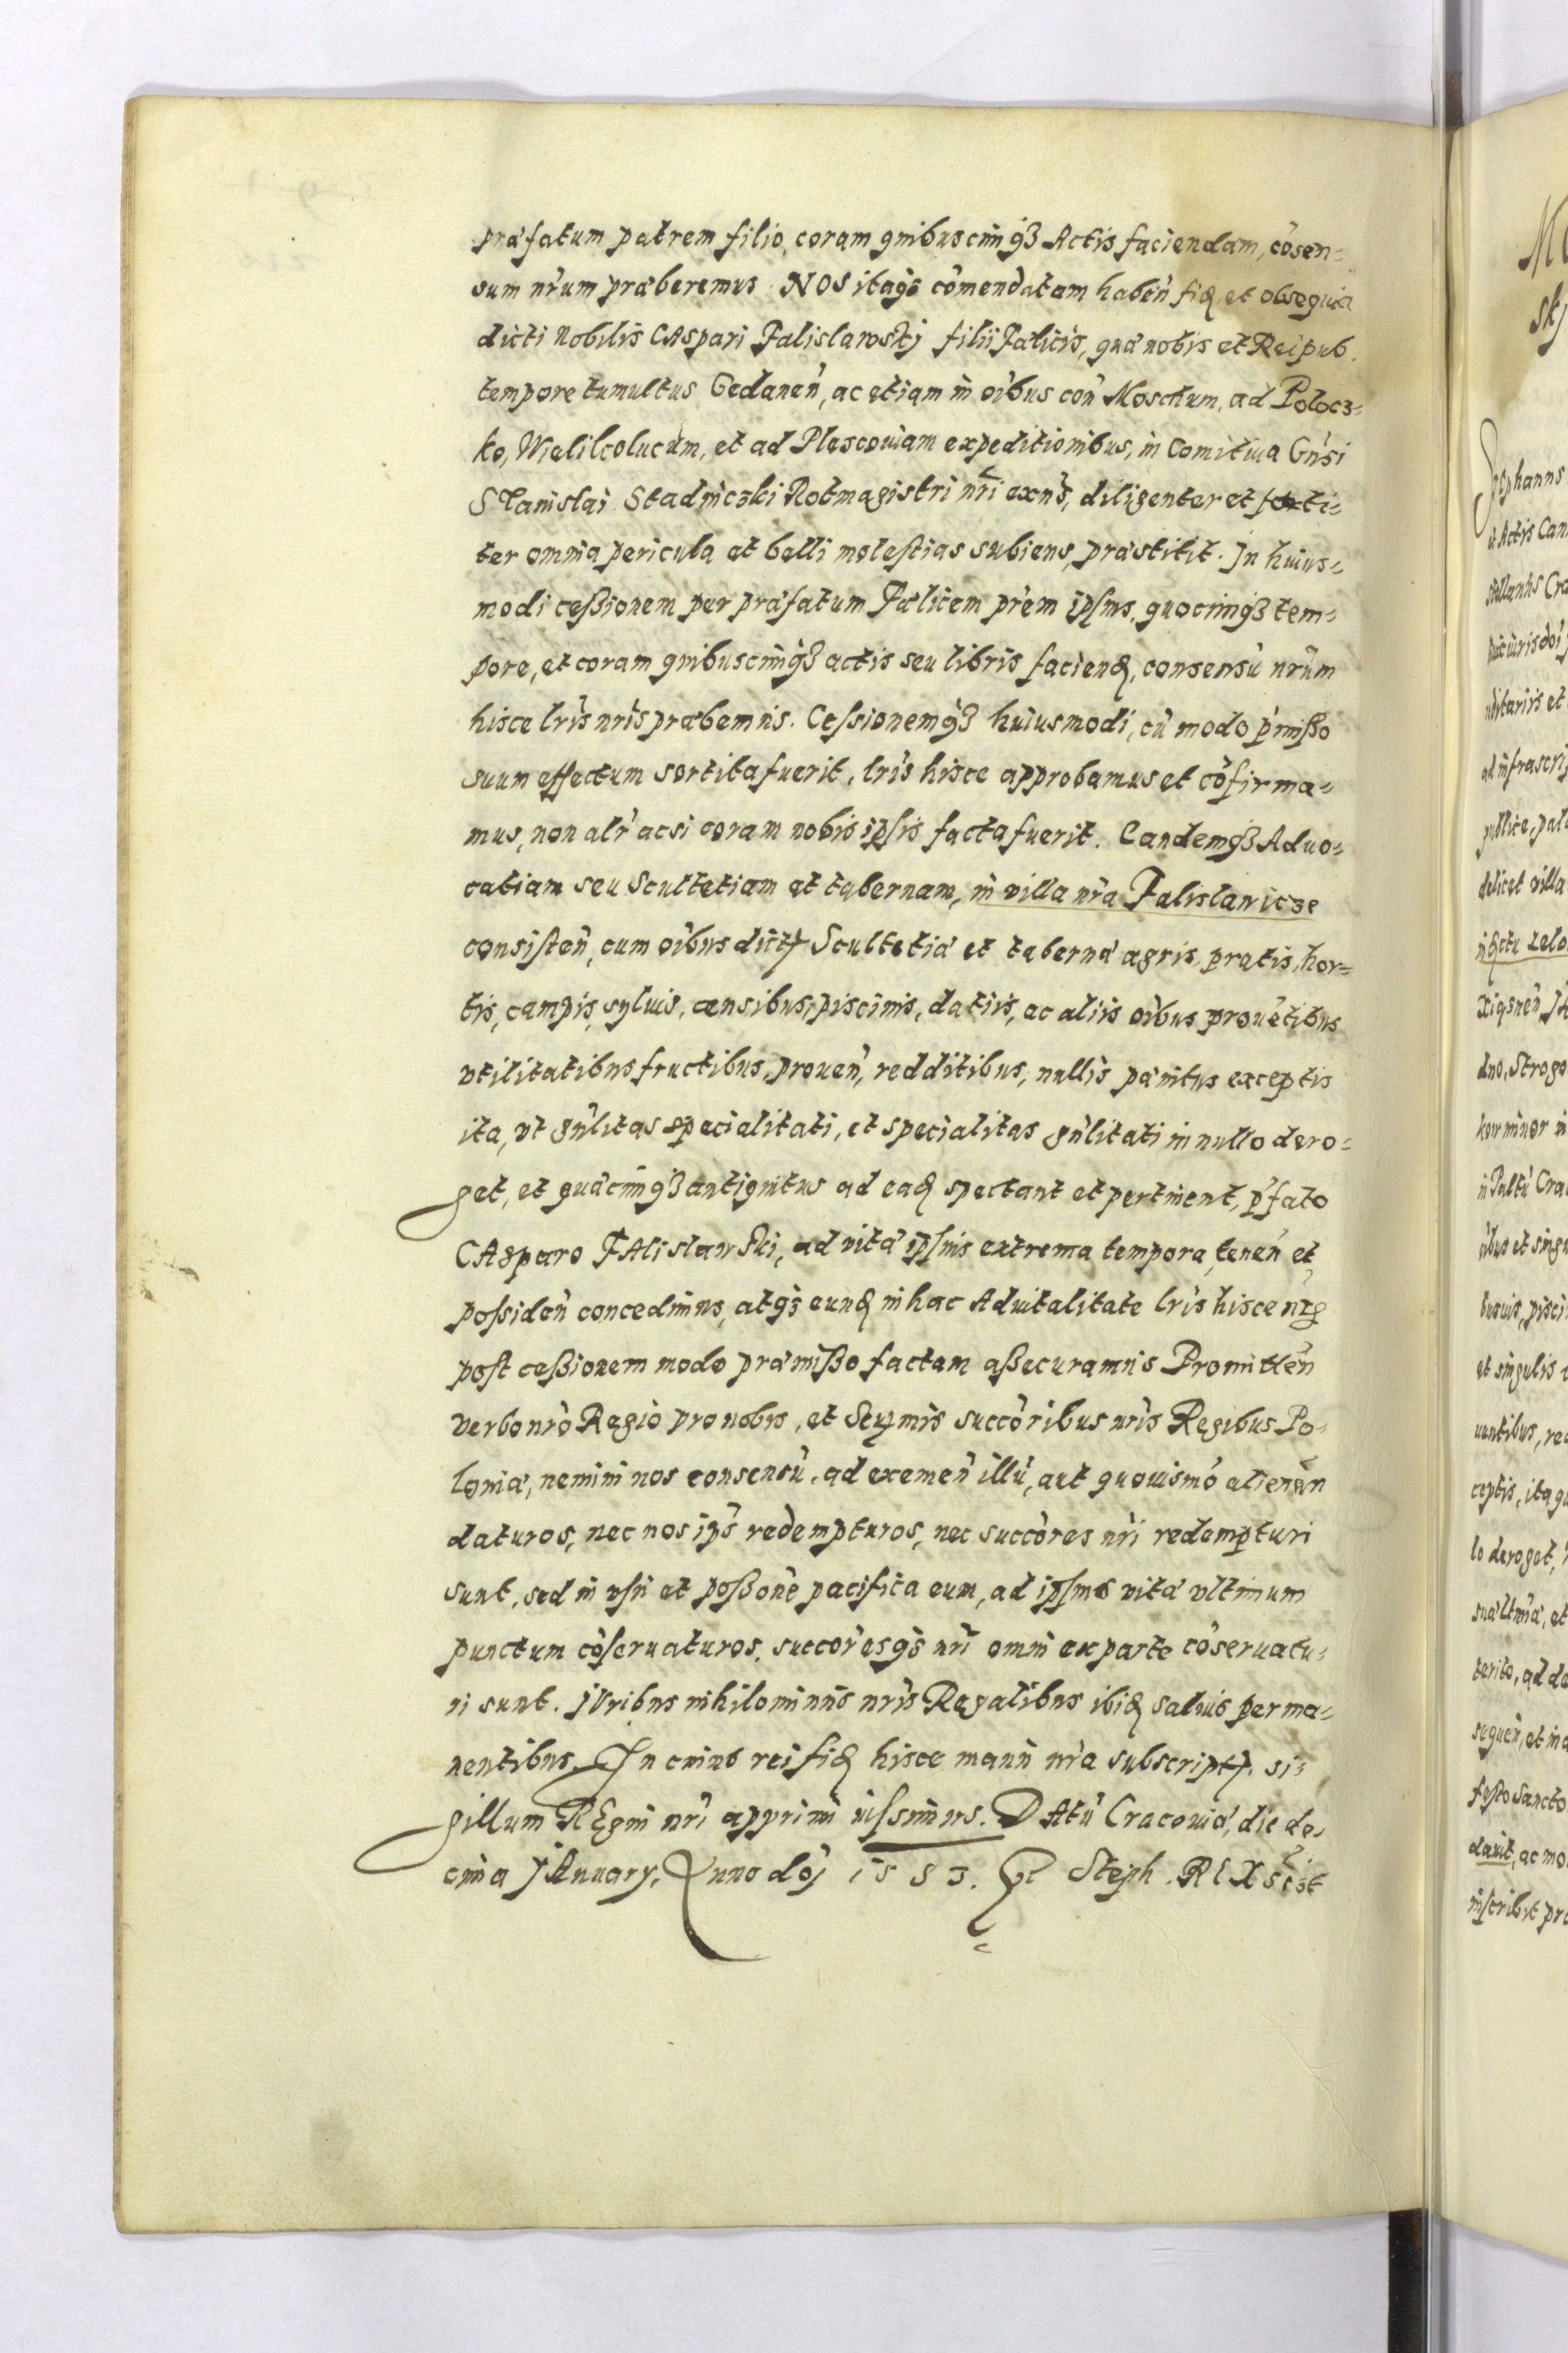 præfatum patrem filio, coram quibuscunq₃ Actis faciendam, cōsen=
sum nrum præberemus. NOS itaq₃ cōmendatam haben fiđ et obsequia
dicti Nobilis CAspari Falislawskj filii Fælicis, quæ nobis et Reipub.
tempore tumultus Gedanen, ac etiam in oibus con Moschum, ad Polocz=
ko, Wielikolucum, et ad Plescouiam expeditionibus, in Comitiua Gnsi
STanislai Stadniczki Rotmagistri nri exns, diligenter et forti=
ter omnia pericula et belli molestias subiens, præstitit. In huius=
modi cessionem per præfatum Fælicem prem ipsius, quocunq₃ tem=
pore, et coram quibuscunq₃ actis seu libris faciend, consensu nrum
hisce lris nris præbemus. Cessionemq₃ huiusmodi, cū modo pmisso
suum effectum sortita fuerit, lris hisce approbamus et cōfirma=
mus, non alr acsi coram nobis ipsis facta fuerit. Eandemq₃ Aduo=
catiam seu Scultetiam et tabernam, in villa nra Falislawicze
consisten, cum oibus dictȝ Scultetiæ et tabernæ agris, pratis, hor=
tis, campis, syluis, censibus, piscinis, datiis, ac aliis oibus prouētibus
vtilitatibus fructibus, prouen, redditibus, nullis pænitus exceptis
ita, vt gnlitas specialitati, et specialitas gnlitati in nullo dero=
get, et quæcunq₃ antiquitus ad eađ spectant et pertinent, pfato
CAsparo FAlislawski, ad vitæ ipsius extrema tempora, tenen et
possiden concedimus, atq₃ eunđ in hac Aduitalitate lris hisce nrȝ
post cessionem modo præmisso factam assecuramus Promitten
verbo nro Regio pro nobis, et Serȝmis succoribus nris Regibus Po=
loniæ, nemini nos consensū, ad exemen illū, aut quouismo alienan
daturos, nec nos ips redempturos, nec succores nri redempturi
sunt, sed in vsu et possone pacifica eum, ad ipsius vitæ vltimum
punctum cōseruaturos, succoresq₃ nri omni ex parte cōseruatu=
ri sunt. jUribus nihilominus nris Regalibus ibiđ saluis perma=
nentibus. In cuius rei fiđ hisce manu nra subscriptȝ. si=
gillum REgni nri apprimi iussimus. DAtū Cracouiæ, die de=
cima jAnuary, Anno doj 1583. Steph. REX sc̄st